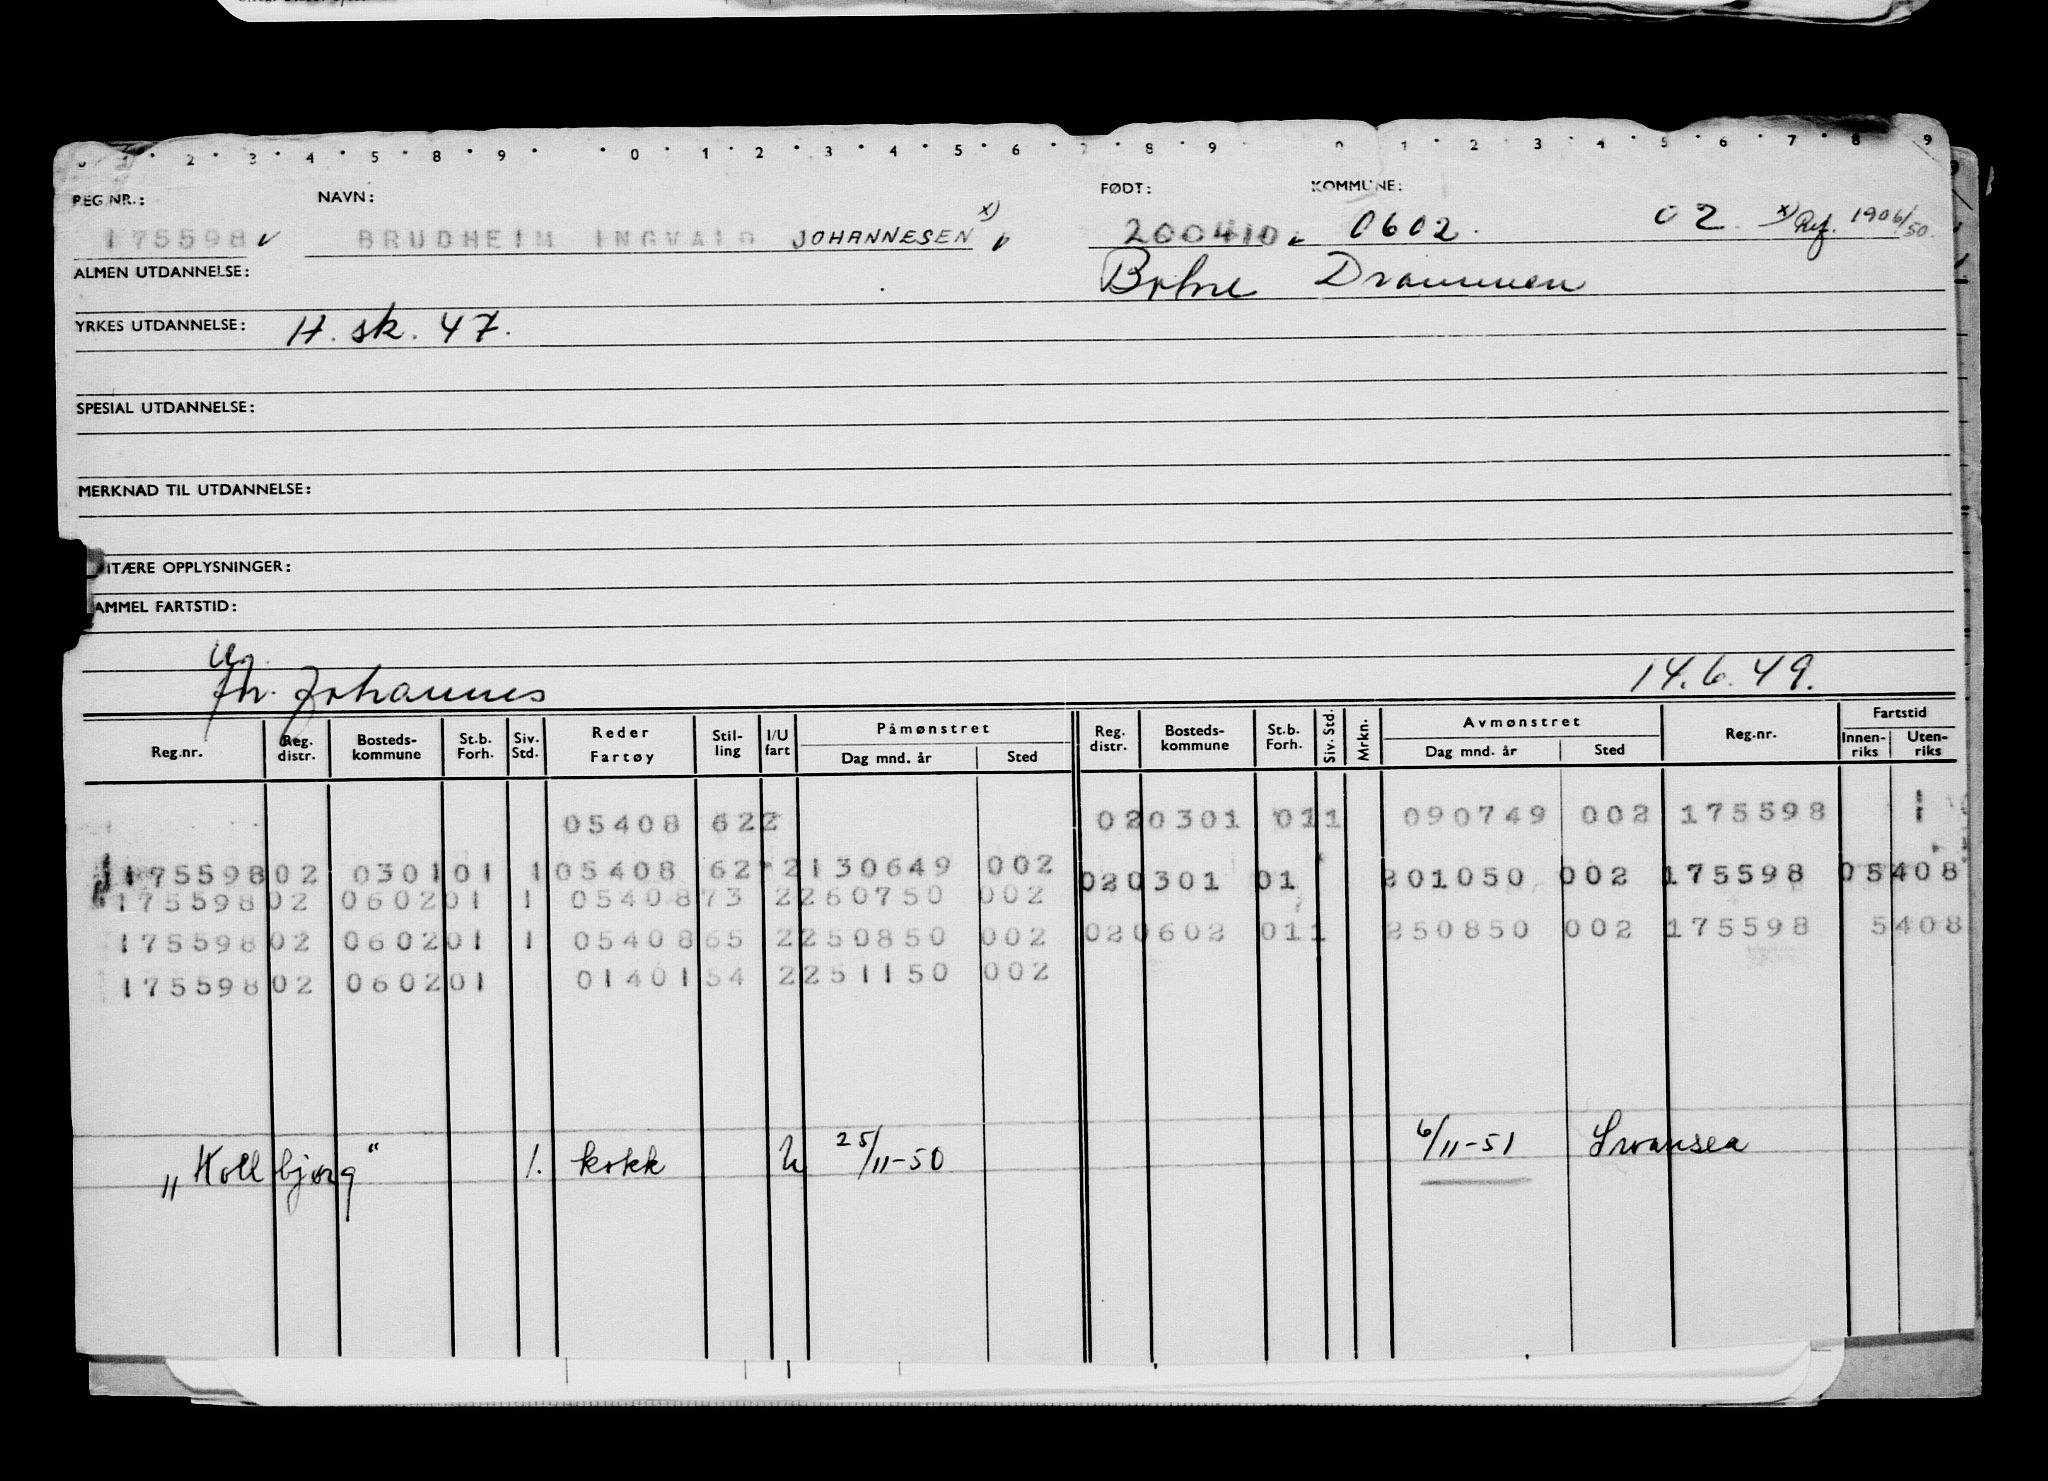 0 1 2 3 4 5 8 9 0 1 2 3 4 5 6 7 8 9 0 1 2 3 4 5 6 7 8 9
REG NR.: NAVN: FØDT: KOMMUNE:
175598 BRUDHEIM INGVALD JOHANNESEN x) 200410 0602. 02 x) Ref. 1906/50.
ALMEN UTDANNELSE: Drammen
YRKES UTDANNELSE: H. sk. 47.
SPESIAL UTDANNELSE:
MERKNAD TIL UTDANNELSE:
ITÆRE OPPLYSNINGER:
AMMEL FARTSTID:
Johannes 14.6.49.
Reg.nr. Reg. distr. Bosteds-kommune St.b. Forh. Siv. Std. Reder Fartøy Stil-ling I/U fart Påmønstret Dag mnd. år Sted Reg. distr. Bosteds-kommune St.b. Forh. Siv. Std. Mrkn. Avmønstret Dag mnd. år Sted Reg.nr. Fartstid Innen-riks Uten-riks
05408 622 020301 011 090749 002 175598 1
17559802 030101 1 05408 62 2130649 002 020301 01 201050 002 175598 05408
17559802 060201 1 0540873 2260750 002
17559802 060201 1 0540865 2250850 002 020602 011 250850 002 175598 5408
17559802 060201 0140154 2251150 002
„Hollbjørg" 1. kokk U 25/11-50 6/11-51 Swansea